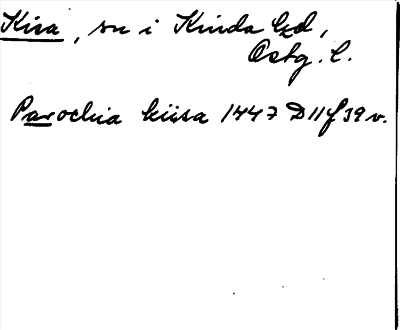 Kisa, sn i Kinda hd,
Östg. l.
Parochia kiisa 1447 D 11 f 39 v.